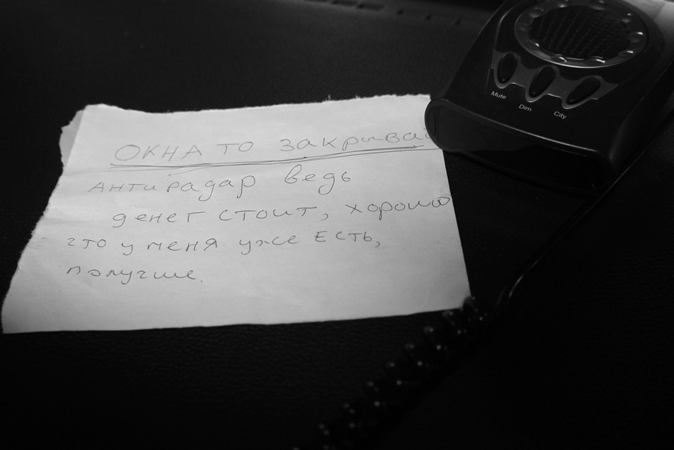 ОКНА ТО ЗАКРЫВАЙ
АНТИРАДАР ВЕДЬ
ДЕНЕГ СТОИТ, ХОРОШО
ЧТО У МЕНЯ УЖЕ ЕСТЬ,
ПОЛУЧШЕ.
Mute
Dim
City